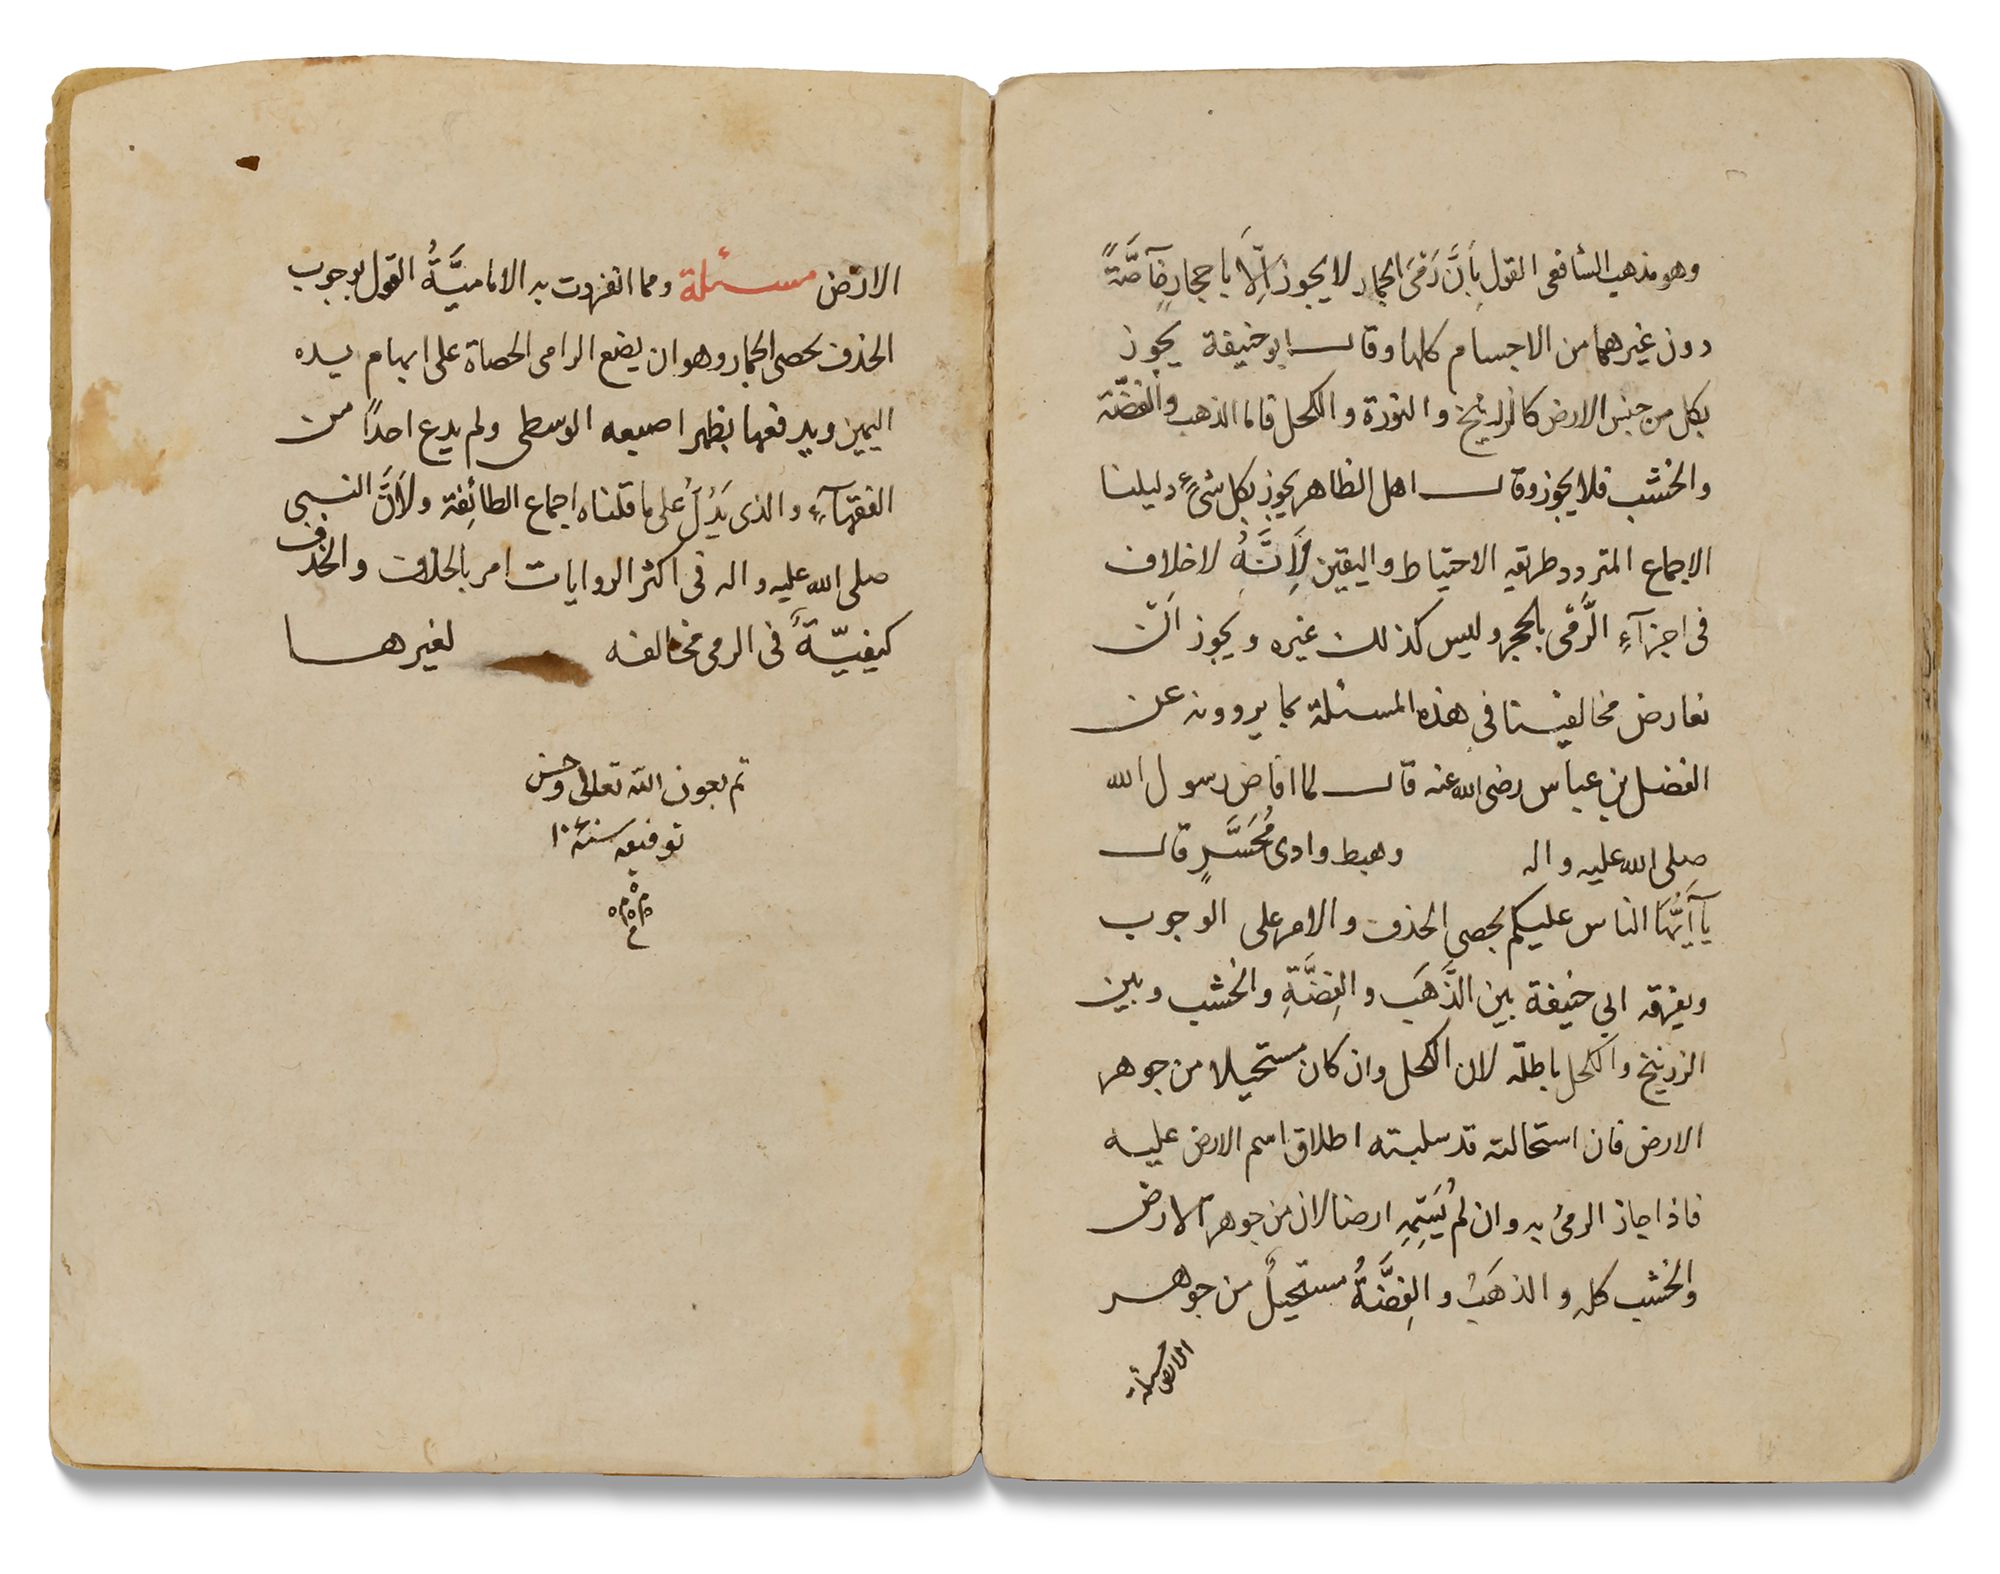 وهو مذهب الشافعى القول بِأنَّ رَمْىَ الجمار لا يجوز اِلّاَ باحجارٍ خآصَّةً
دون غيرهما من الاجسام كلها وقال ابو حنيفة يجوز
بكل من جنس الارض كالزرنيخ والنورة والكحل فاما الذهب والفضّة
والخشب فلا يجوز وقال اهل الظاهر يجوز بكل شىءٍ دليلنا
الاجماع المتردد وطريقه الاحتياط واليقين لِاَنَّهُ لا خلاف
فى اجزآءِ الرَّمى بالحجر وليس كذلك غيره ويجوز اَنْ
نعارض مخالفينا فى هذه المسئلة بما يروونه عن
الفضل بن عباس رضى الله عنه قال لما افاض رسول الله
صلى الله عليه واله وهبط وادى مُحَسَّرٍ قال
يآ اَيُّهَا الناس عليكم بحصى الحذف والامر على الوجوب
ويفرقه ابى حنيفة بين الذَّهَب والفِضَّةِ والخشب وبين
الزرنيخ والكحل باطلة لان الكحل وان كان مستحيلا من جوهر
الارض فان استحالته قد سلبته اطلاق اسم الارض عليه
فاذا جاز الرمىُ به وان لم يُسَمِّهِ ارضا لان من جوهر الارض
والخشب كله والذهَبُ والفِضَّةُ مستحيلٌ من جوهر
الارض مسئلة
الارض مسئلة ومما انفردت به الاماميَّةُ القول بوجوب
الحذف بحصى الجمار وهو ان يضع الرامى الحصاة على ابهام يده
اليمين ويدفعها بظهر اصبعه الوسطى ولم يدع احداً من
الفقهآءِ والذى يَدُلُّ على ما قلناه اجماع الطائفة ولاَنَّ النبى
صلى الله عليه واله فى اكثر الروايات امر بالحذف والحذف
كيفيّةٌ فى الرمى مخالفه لغيرها
تم بعون الله تعالى وحسن
توفيقه سنة